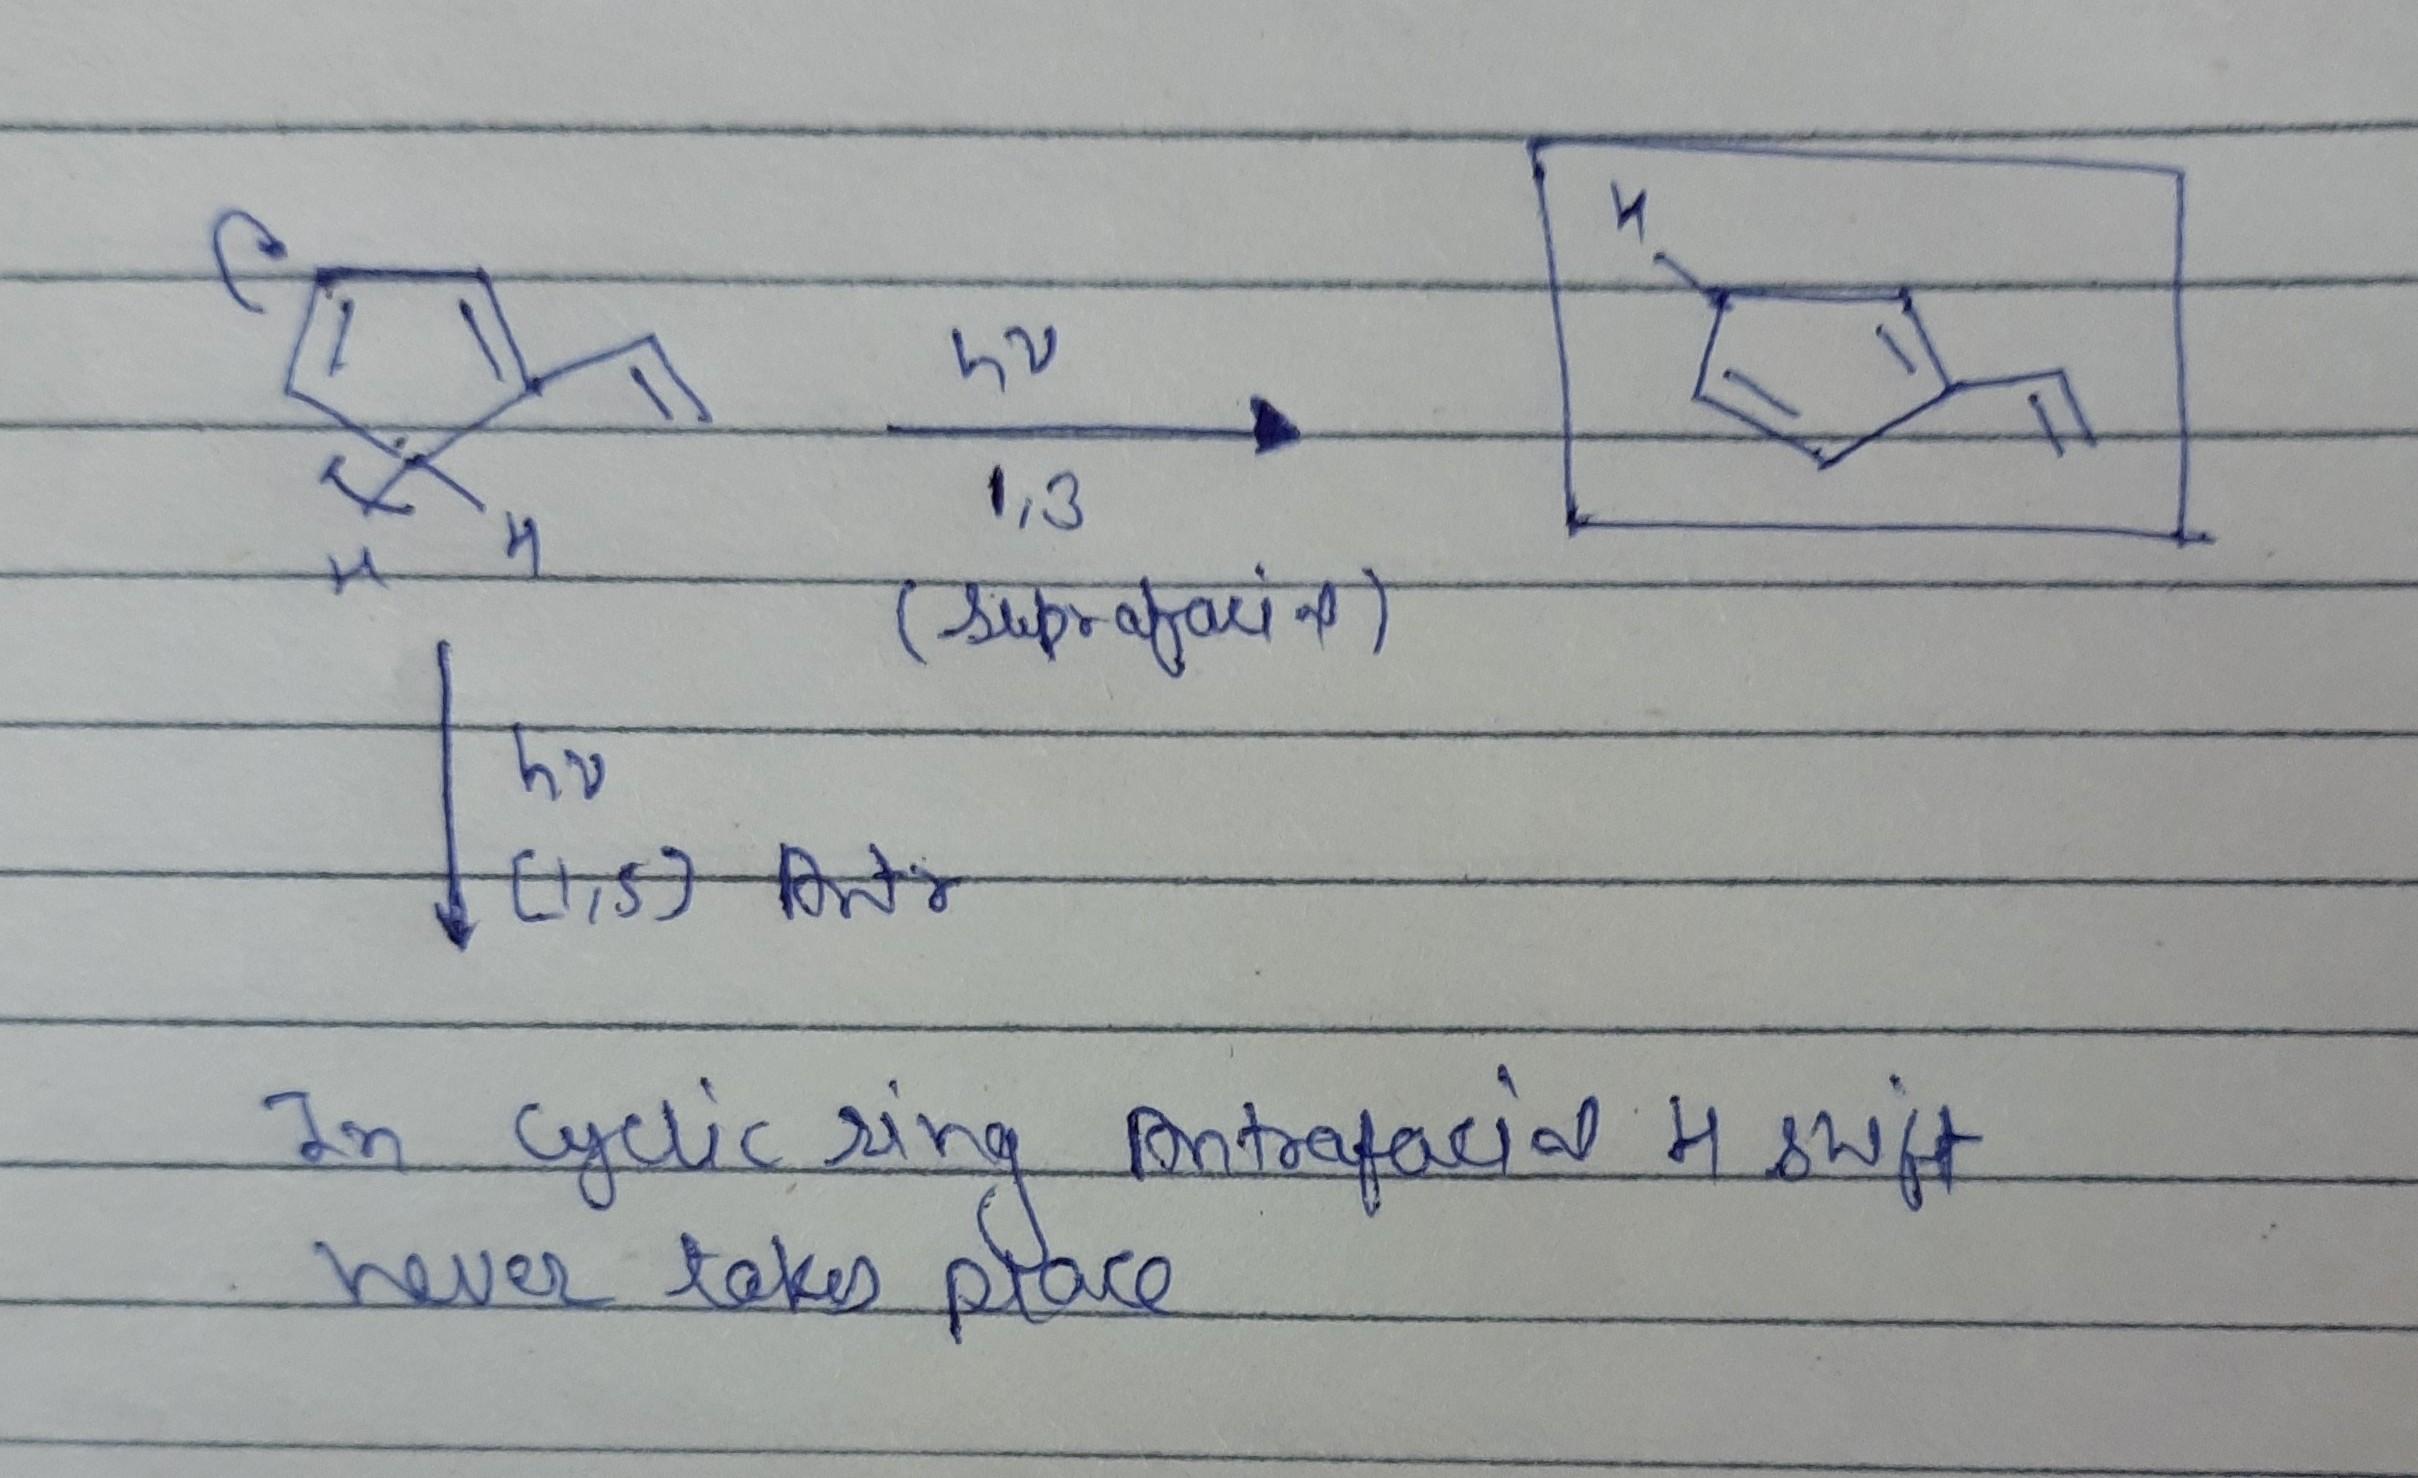 H
hν
1,3
H H
(suprafacial)
hν
[1,5] Antr
In cyclic ring Antrafacial H swift
never takes place